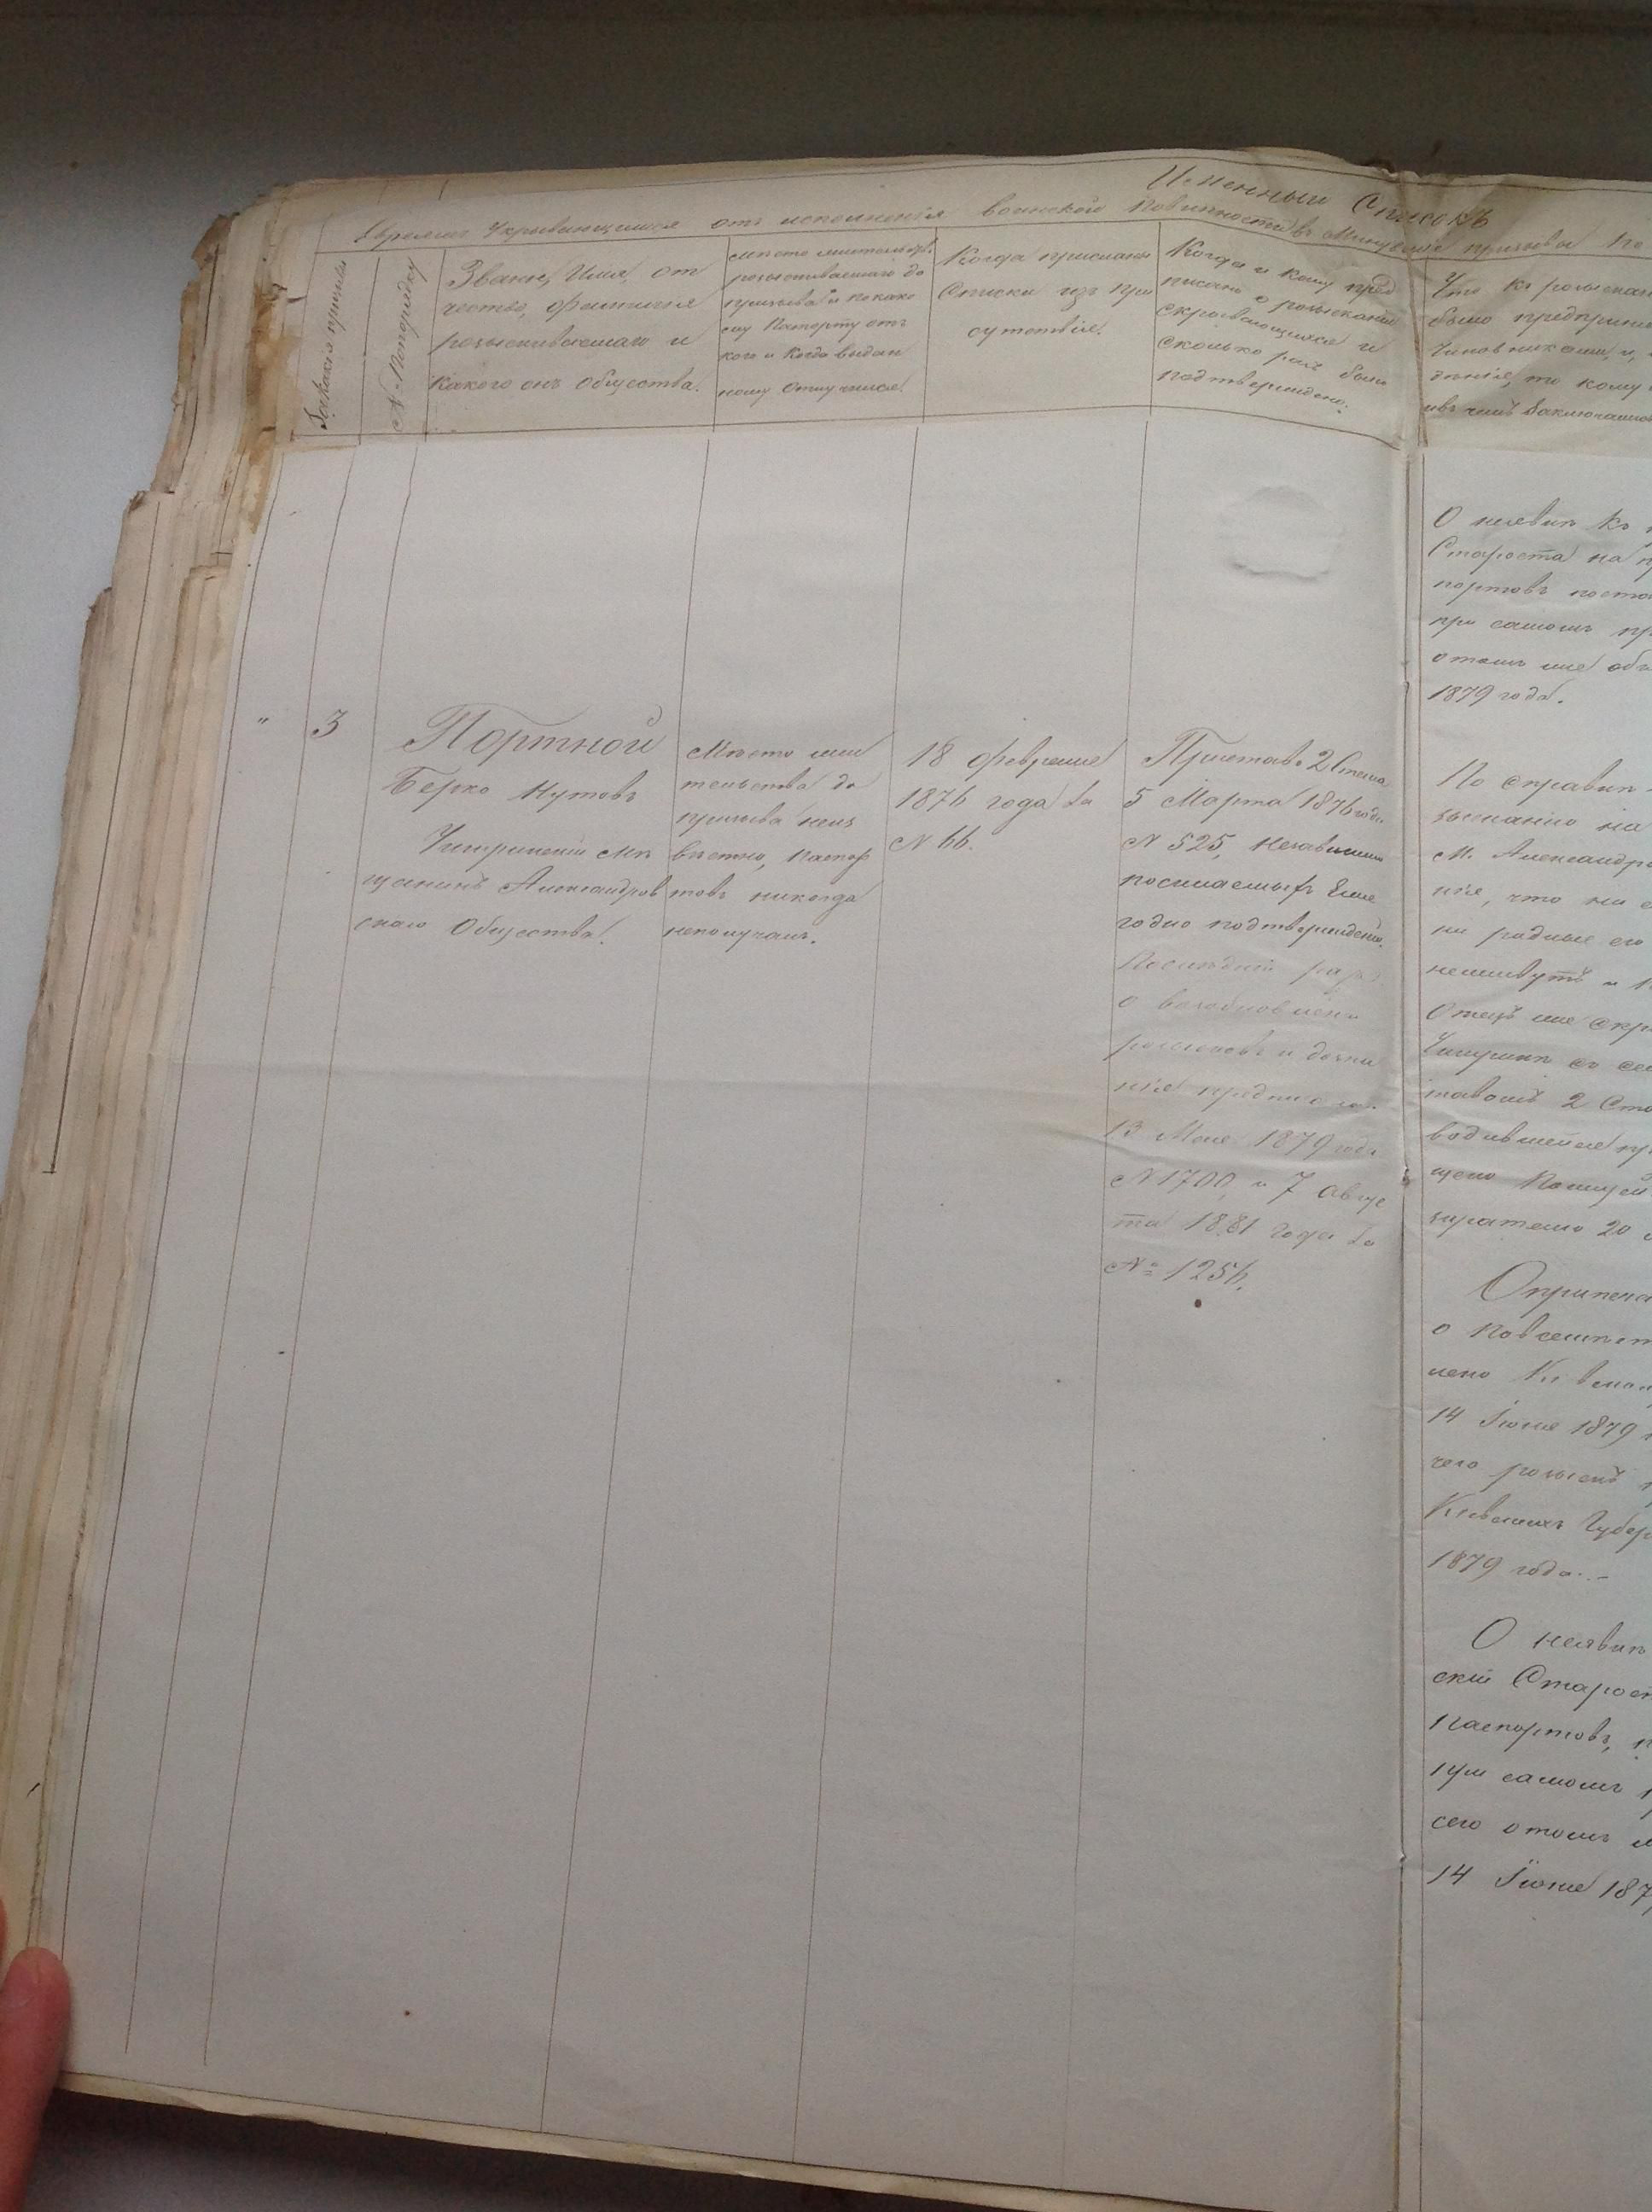 Именный Списокъ
Евреямъ Укрывающимся отъ исполненія воинской Повинности въ Минувшіе призывы По
Званіе, Имя, от
чество, фамилія
розыскиваемаго и
какого онъ общества.
Место жительства
розыскиваемаго до
призыва и по како
му Паспорту отъ
кого и когда выдан
ному отлучился
Когда присланы
Списки изъ При
сутствія.
Когда и кому пред
писано о розысканіи
скрывающихся и
сколько разъ было
подтверждено.
Что къ розыскан
было предприня
Чиновниками, и,
денія, то кому
въ чемъ заключались
№ Попорядку
"
3
Портной
Берко Нутовъ
Чигиринскій Мѣ
щанинъ Александров
скаго Общества.
Мѣсто жи
тельства до
призыва неиз
вѣстно, паспор
товъ никогда
неполучалъ.
18 февраля
1876 года за
№ 66.
Приставу 2 Стана
5 Марта 1876 года
№ 525, Независимо
посылаемыхъ Еже
годно подтвержденій.
Послѣдній разъ
о возобновленіи
розысковъ и дозна
нія предписано
13 Мая 1879 года
№ 1700, и 7 Авгус
та 1881 года за
№ 1256.
О неявкѣ къ
Староста на
портовъ
при самомъ пр
отомъ же объ
1879 года.
По справкѣ
зыскано на
М. Александро
ніе, что ни
ни родные его
неживутъ и
Отецъ же скр
Чигиринѣ съ сем
ставомъ 2 Ста
водившейся пр
щено Полицей
20
Оприпеча
о Повсемѣст
лено Кіевском
14 Іюня 1879
чего розыскъ
Кіевскихъ Губер
1879 года.-
О неявкѣ
скій Старост
паспортовъ,
при самомъ
сего отомъ
14 Іюня 187